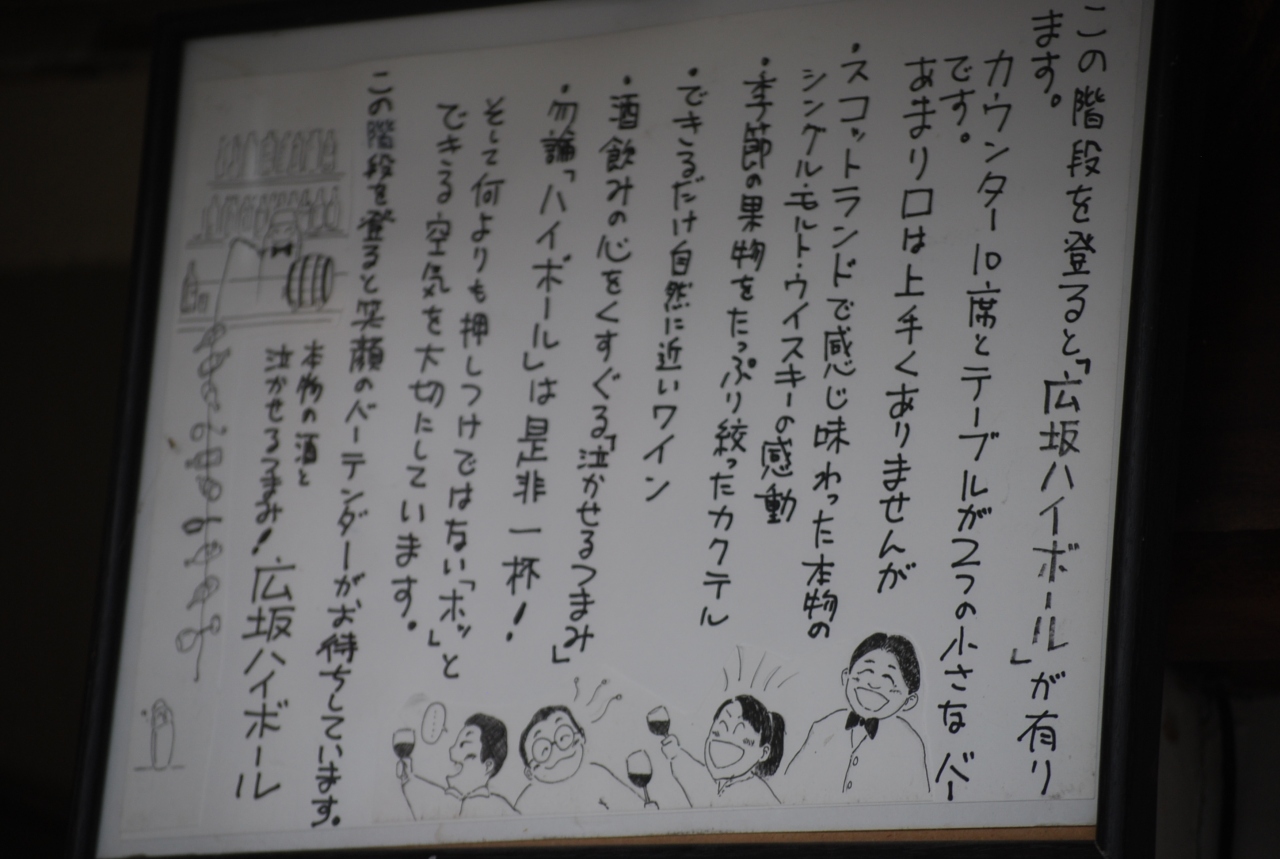 この階段を登ると「広坂ハイボール」が有り
ます。
カウンター10席とテーブルが2つの小さなバー
です。
あまり口は上手くありませんが
・スコットランドで感じ味わった本物の
シングル・モルト・ウイスキーの感動
・季節の果物をたっぷり絞ったカクテル
・できるだけ自然に近いワイン
・酒飲みの心をくすぐる「泣かせるつまみ」
・勿論「ハイボール」は是非一杯！
そして何よりも押しつけではない「ホッ」と
できる空気を大切にしています。
この階段を登ると笑顔のバーテンダーがお待ちしています。
本物の酒と
泣かせるつまみ！広坂ハイボール